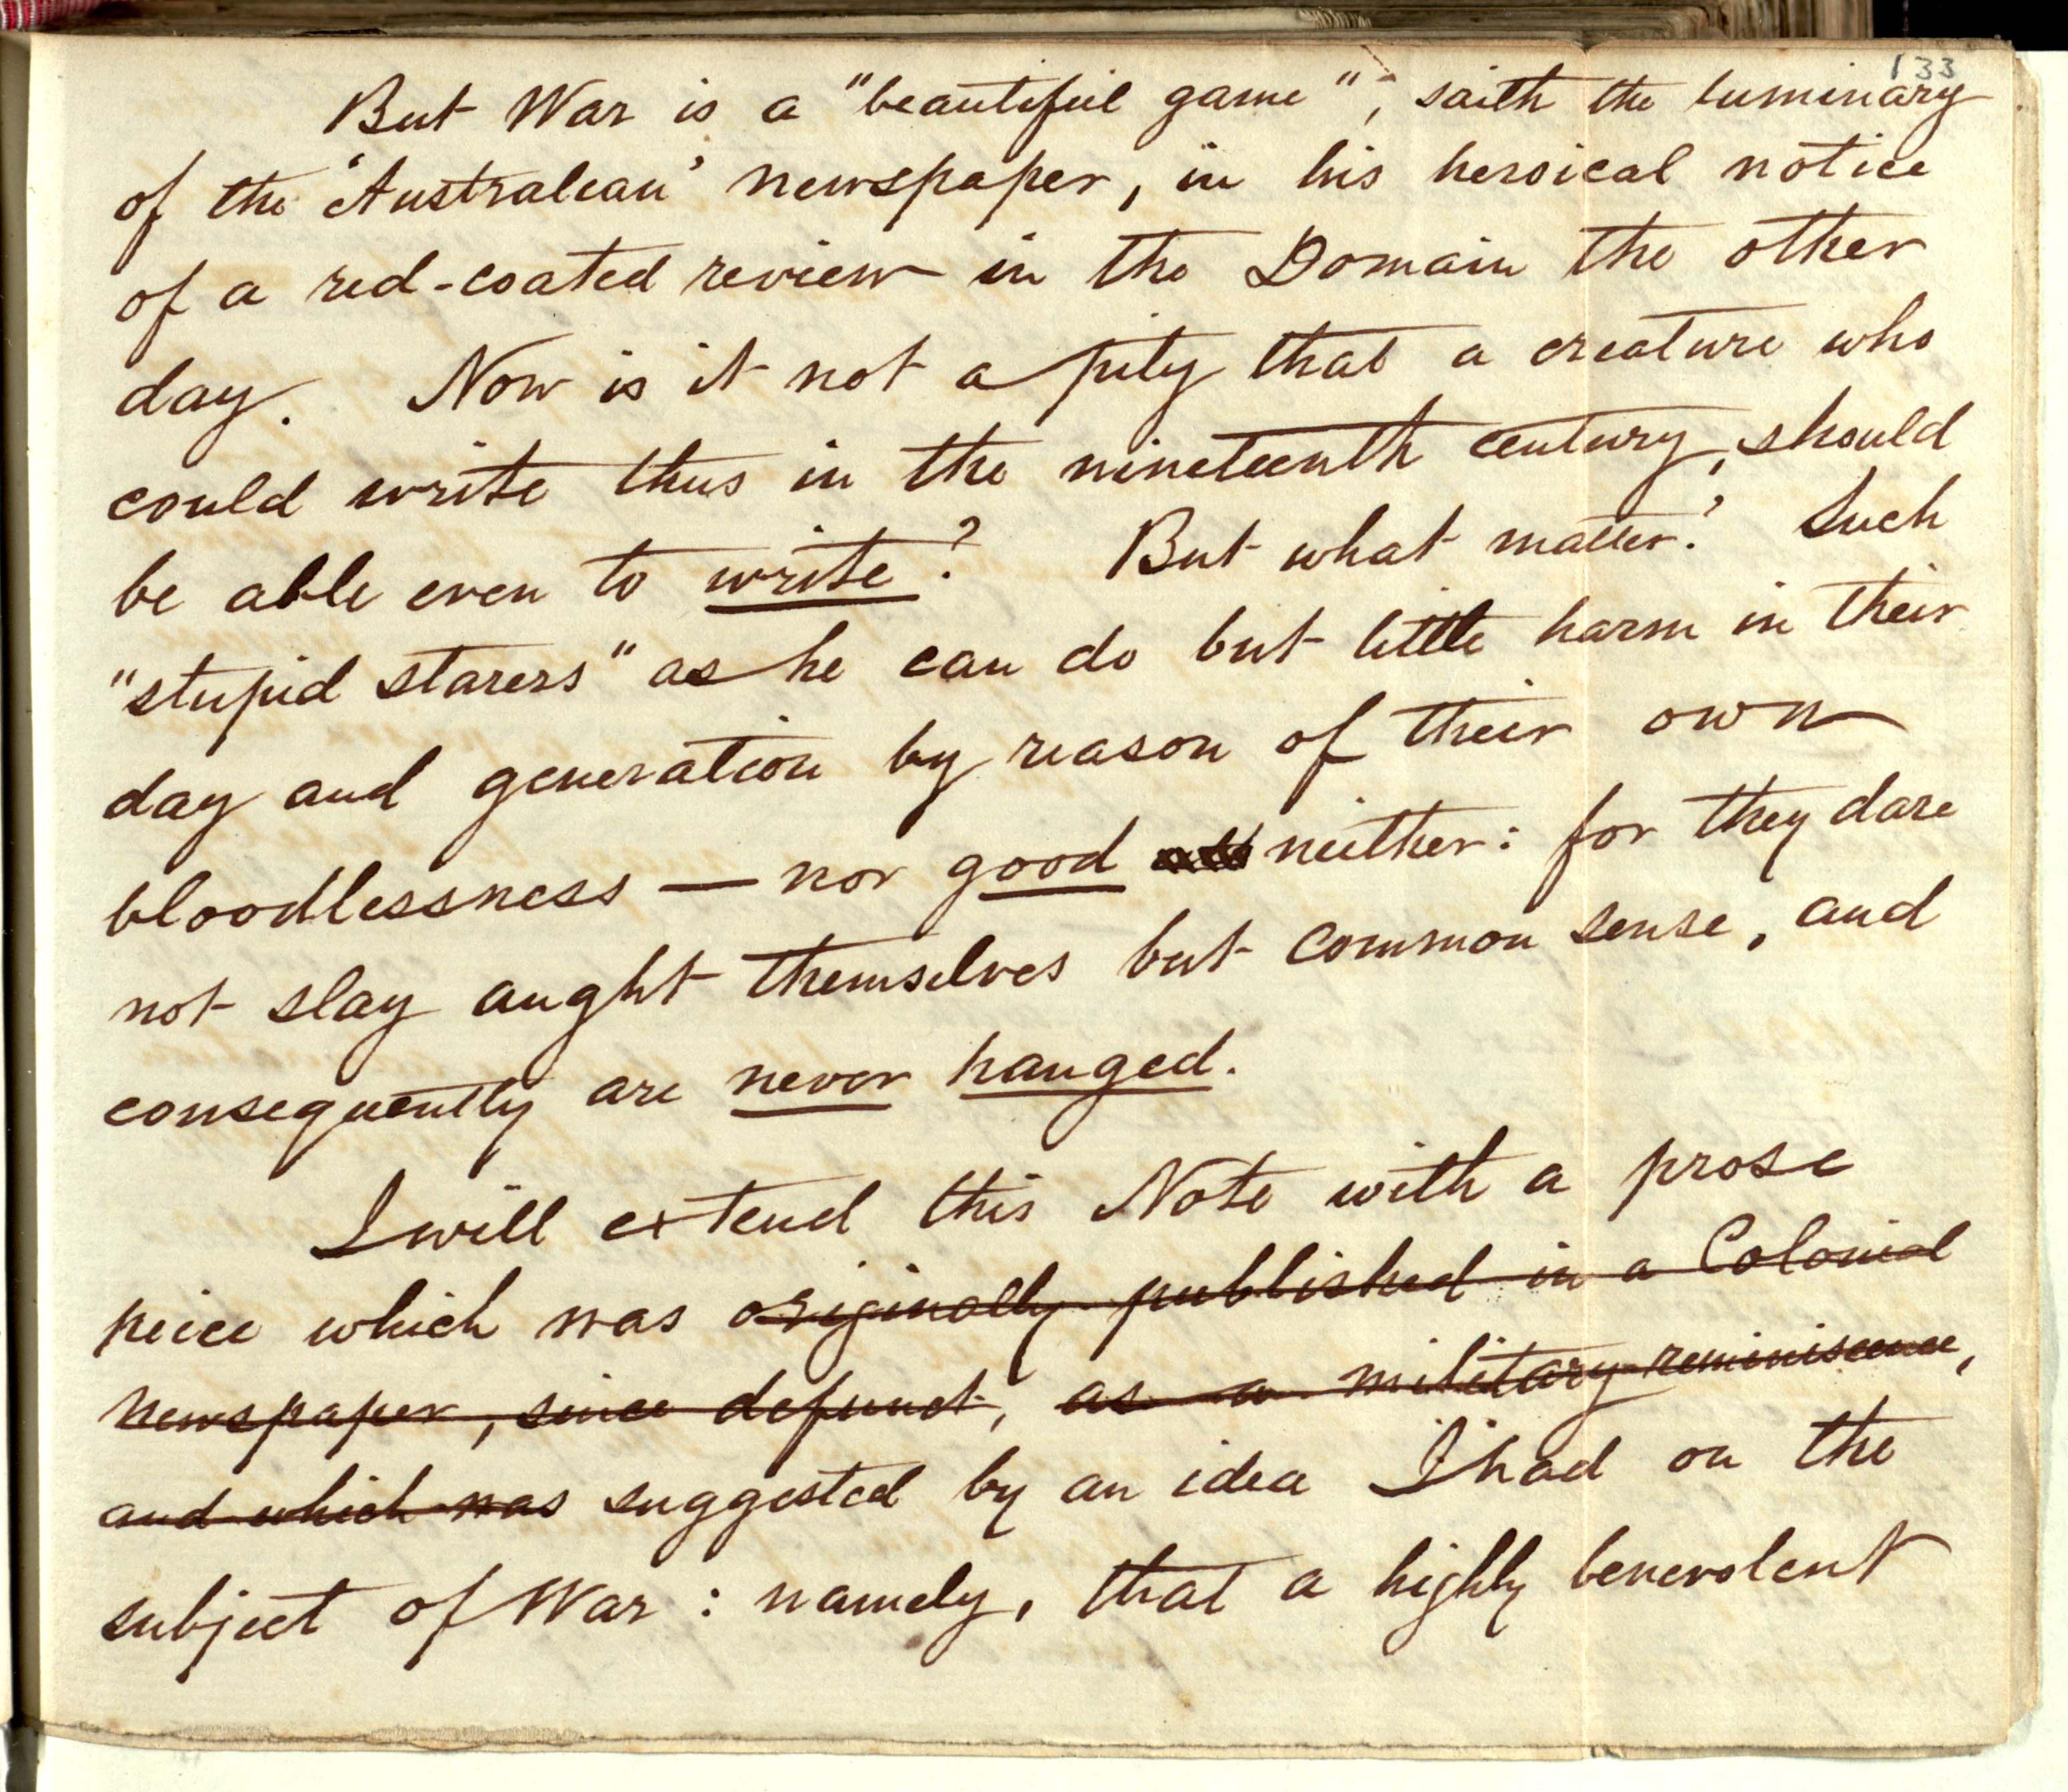 133
But War is a "beautiful game", saith the luminary
of the 'Australian' newspaper, in his heroical notice
of a red-coated review in the Domain the other
day. Now is it not a pity that a creature who
could write thus in the nineteenth century, should
be able even to write? But what matter? Such
"stupid starers" as he can do but little harm in their
day and generation by reason of their own
bloodlessness — nor good neither: for they dare
not slay aught themselves but common sense, and
consequently are never hanged.
I will extend this Note with a prose
peice which was originally published in a Colonial
newspaper, since defunct, as a military reminiscence,
and which was suggested by an idea I had on the
subject of War: namely, that a highly benevolent